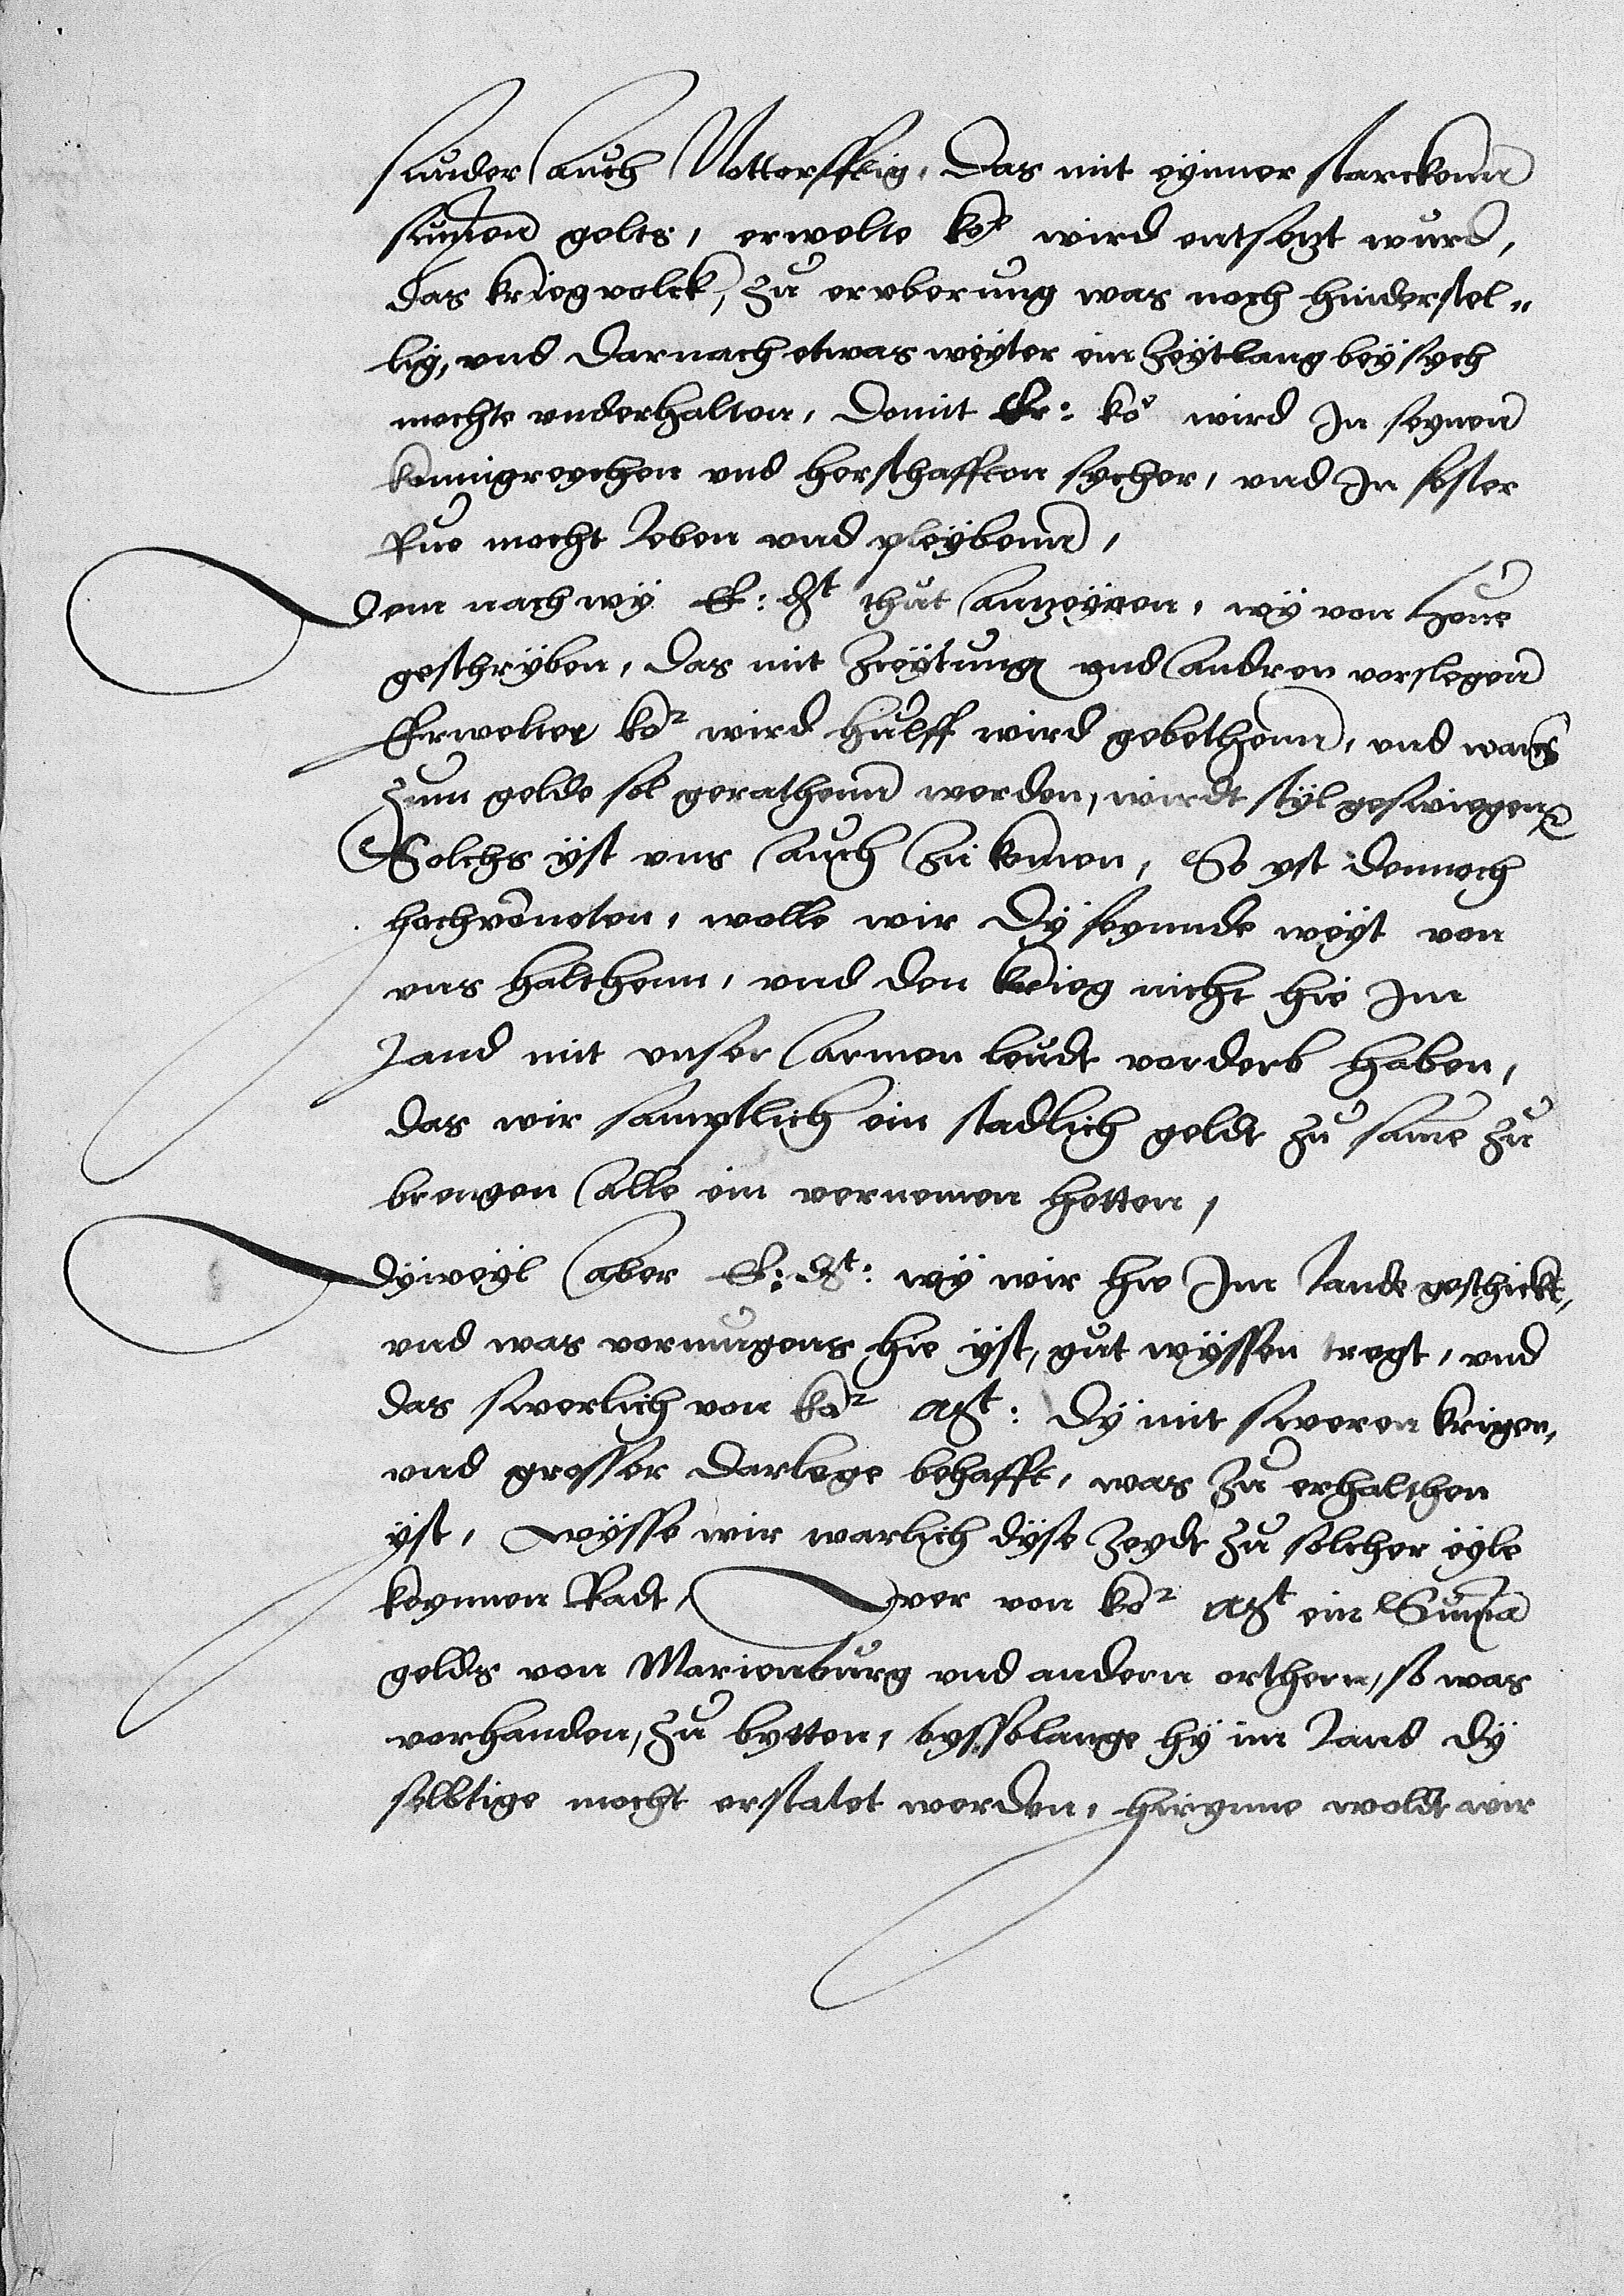 sunder auch Notterfftig, Das mit eynner starckenn
sumen gelts, erwelte ko wird entsetzt wurd,
das kriegvolck, zu eroberung was noch hinderstel„
lig, vnd darnach etwas weyter ein zeytlang bey sych
mochte vnderhalten, Domit Er: ko wird In seynen
konnigreychen vnd herschafften sycher, vnd In fester
Rue mocht leben vnd pleybenn,
Dem nach wy E: gt thut anzeygen, wy von houe
geschryben, das mit zceytung vnd andren vorslegen
Erwelter kor wird hulff wird gebethenn, vnd wans
zum gelde sol gerathenn werden, wirdt styl geswiegen
Solchs yst vns auch zu komen, So yst dennoch
hochvonoten, wolle wir dy feynnde weyt von
vns halthenn, vnd den krieg nicht hie Im
land mit vnser armen leudt vorderb haben,
das wir samptlich ein stadlich geldt zu same zu
brengen alle ein vernemen hetten,
Dyweyl aber E: gt: wy wir hie Im lande geschickt,
vnd was vormugens hie yst, gut wyssen tregt, vnd
das swerlich von kor mgt: dy mit sweren krigen,
vnd grosser darlege behafft, was zu erhalthen
yst, wysse wir warlich dyse zeydt zu solcher eyle
keynnen Radt, wer von kor mgt ein Summa
gelds von Marienburg vnd andern orthern, so was
vorhanden, zu bytten, byssolange hy im land dy
selbtige mocht erstatet werden, hirynne woldt wir